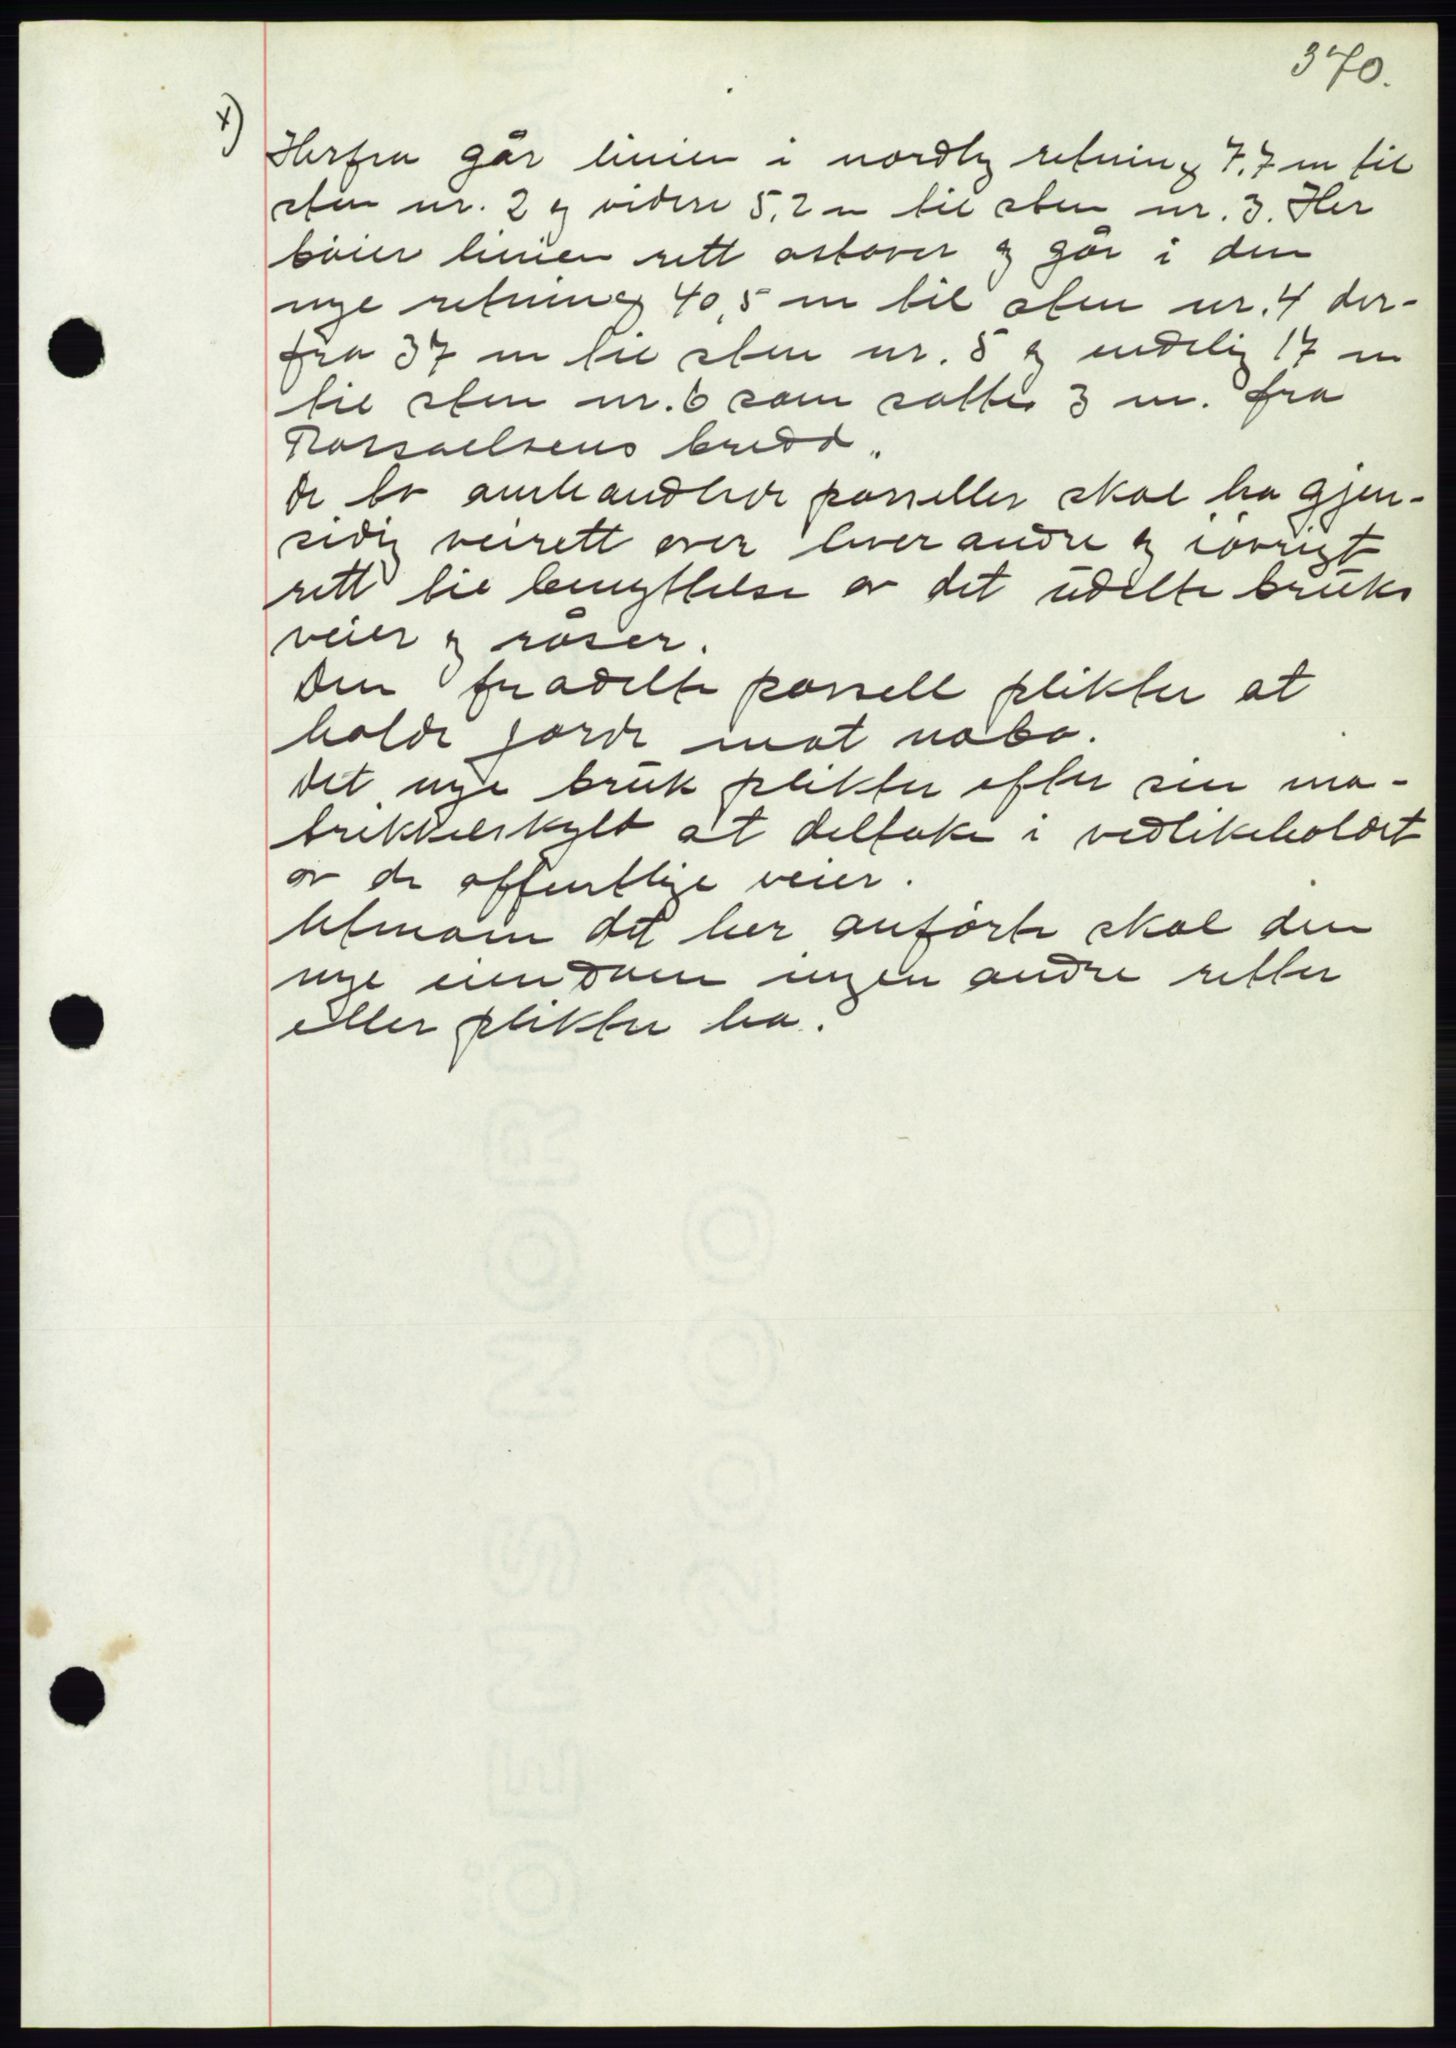 370.
x)
Herfra går linien i nordlig retning 7,7 m til
sten nr. 2 og videre 5,2 m til sten nr. 3. Her
bøier linien rett østover og går i den
nye retning 40,5 m til sten nr. 4 der-
fra 37 m til sten nr. 5 og endelig 17 m
til sten nr. 6 som sattes 3 m. fra
bredd.
De to omhandlede parseller skal ha gjen-
sidig veirett over hverandre og iøvrigt
rett til benyttelse av det udelte bruks
veier og råser.
Den fradelte parsell plikter at
holde gjerde mot nabo.
Det nye bruk plikter efter sin ma-
trikkelskyld at deltake i vedlikeholdet
av de offentlige veier.
Utenom det her anførte skal den
nye eiendom ingen andre retter
eller plikter ha.
VØENS NOR
2000